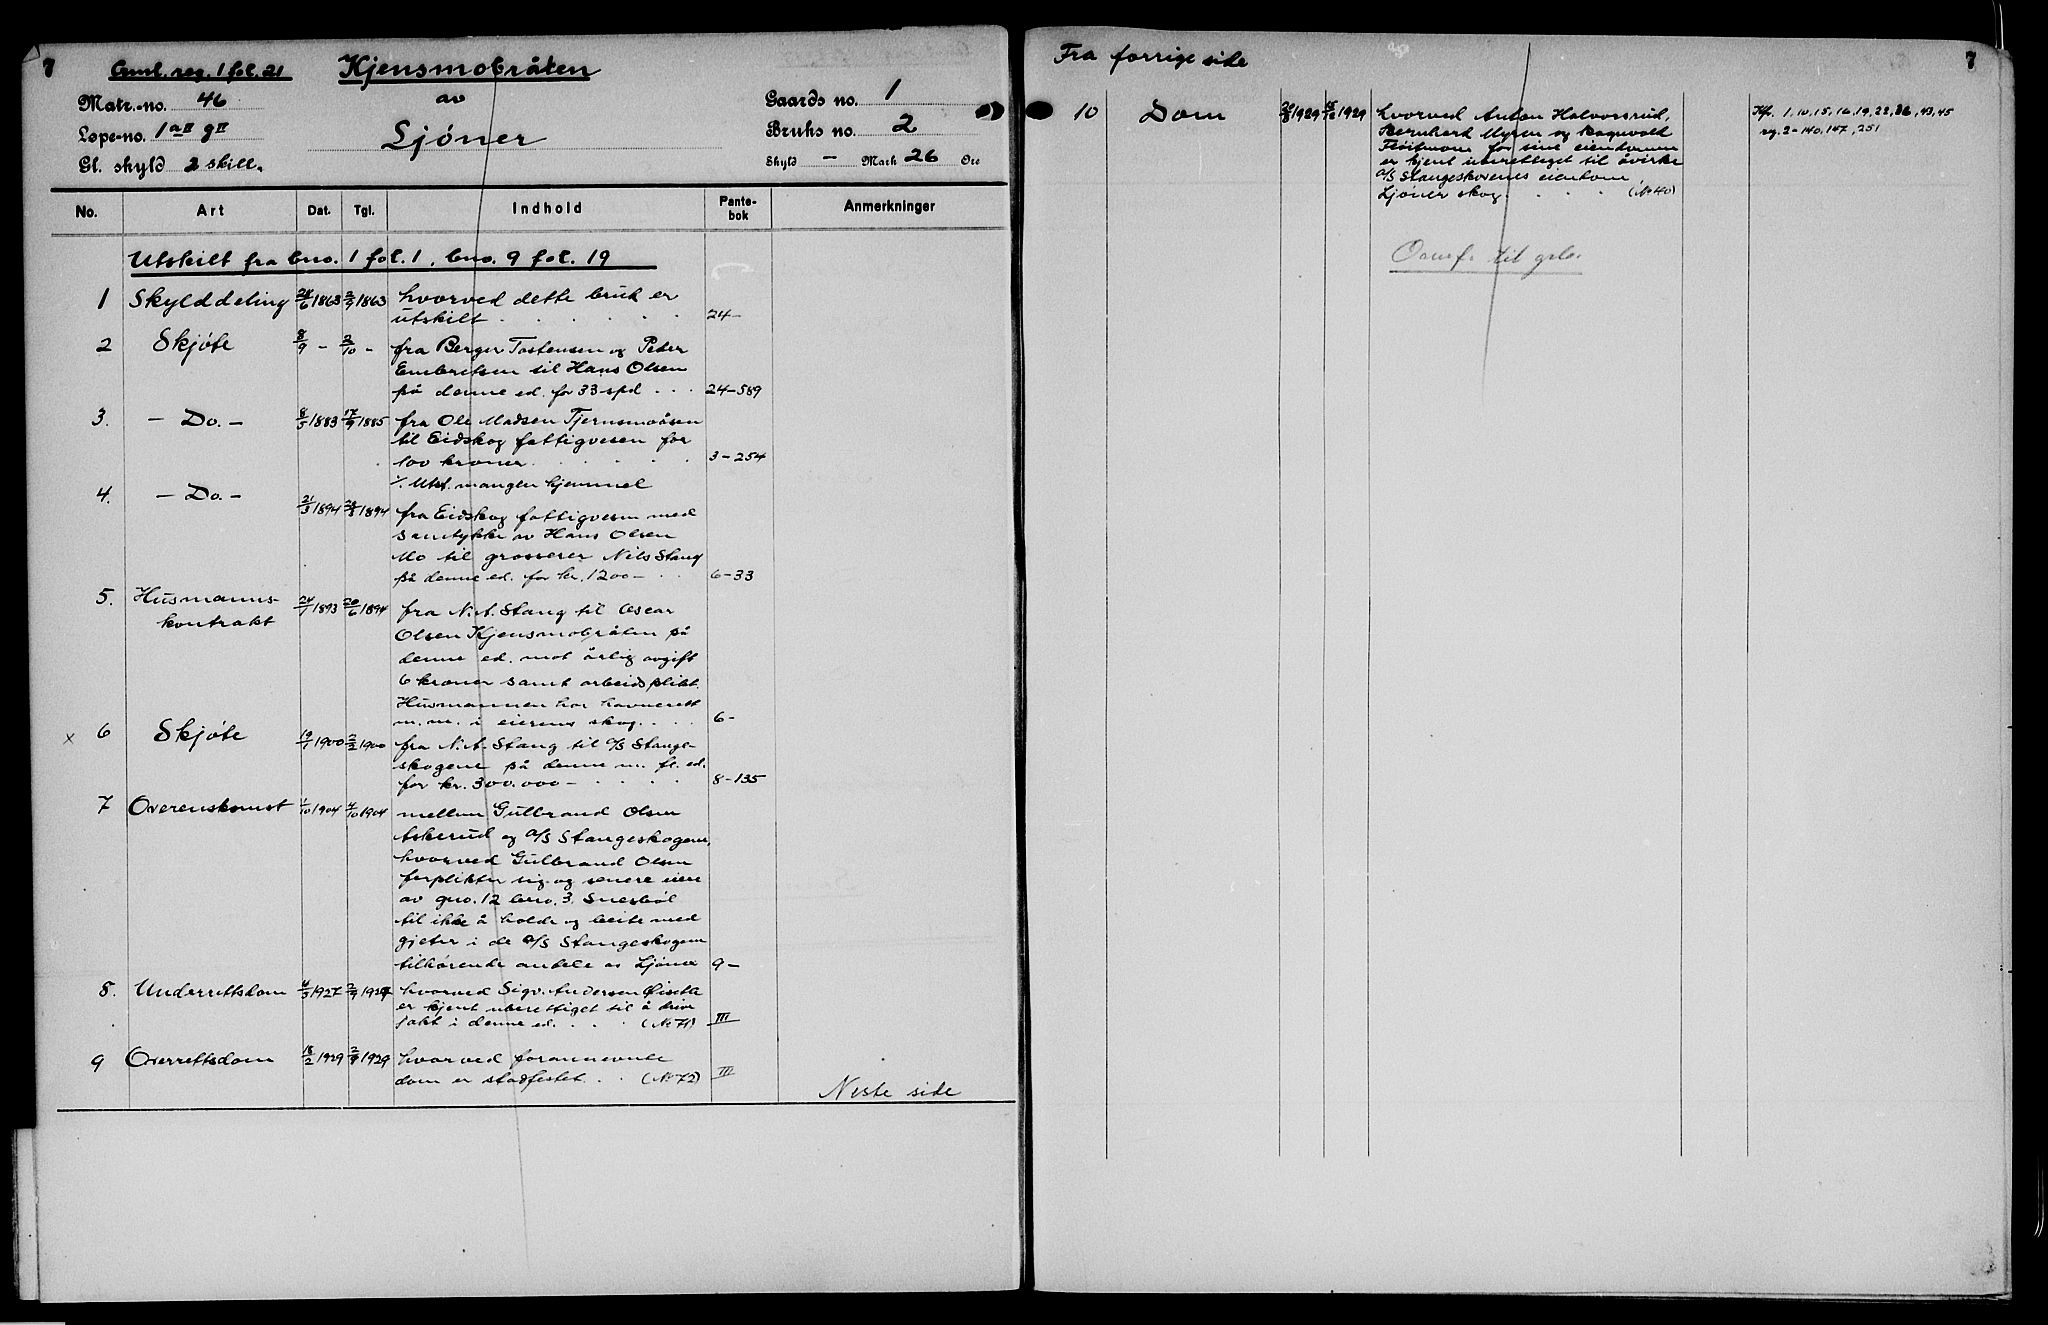 7
Gml. reg. 1 fol. 21
Kjensmobråten
av
Ljöner
Matr.-no. 46
Løpe-no. 1 a II g II
Gl. skyld 2 skill.
Gaards no. 1
Bruks no. 2
Skyld — Mark 26 Øre
No. Art Dat. Tgl. Indhold Pante-bok Anmerkninger
Utskilt fra bno. 1 fol. 1, bno. 9 fol. 19
1 Skylddeling 24/6 1863 2/9 1863 hvorved dette bruk er
utskilt . . . . . 24-
2 Skjöte 8/9 - 2/10 - fra Berger Tostensen og Peder
Embretsen til Hans Olsen
på denne ed. for 33 spd . . . 24-589
3. - Do. - 8/5 1883 17/9 1885 fra Ole Madsen Tjernsmoåsen
til Eidskog fattigvesen for
100 kroner . . . . 3-254
%. Utst. mangler hjemmel
4. - Do. - 21/3 1894 28/3 1894 fra Eidskog fattigvesen med
samtykke av Hans Olsen
Mo til grosserer Nils Stang
på denne ed. for kr. 1200- . . 6-33
5. Husmanns-
kontrakt 24/1 1893 20/6 1894 fra N. A. Stang til Oscar
Olsen Kjensmobråten på
denne ed. mot årlig avgift
6 kroner samt arbeidsplikt.
Husmannen har havnerett
m.m. i eierens skog. . . . 6-
x 6 Skjöte 19/1 1900 2/2 1900 fra N. A. Stang til A/S Stange-
skogene på denne m. fl. ed.
for kr. 300.000- . . . . 8-135
7 Overenskomst 1/10 1904 4/10 1904 mellem Gulbrand Olsen
Askerud og A/S Stangeskogene,
hvorved Gulbrand Olsen
forplikter sig og senere eiere
av gno. 12 bno. 3. Snesböl
til ikke å holde og beite med
gjeter i de A/S Stangeskogene
tilhörende andele av Ljöner 9-
8. Underrettsdom 4/3 1927 2/9 1929 hvorved Sigv. Andersen
er kjent uberettiget til å drive
jakt i denne ed. . . . (No 71) III
9 Overrettsdom 18/2 1929 2/9 1929 hvorved forannevnte
dom er stadfestet. . . (No 72) III
Neste side
Fra forrige side
7
10 Dom 1929 1929 hvorved Anton Halvorsrud,
Bernhard Myren og Ragnvald
for sine eiendomme
er kjent uberettiget til åvirke
A/S Stangeskovenes eiendom
Ljöner skog. . . . (No 40)
Kfr. 1, 10, 15, 16, 19, 22, 36, 43, 45
og 2-140, 147, 251
Overf. til